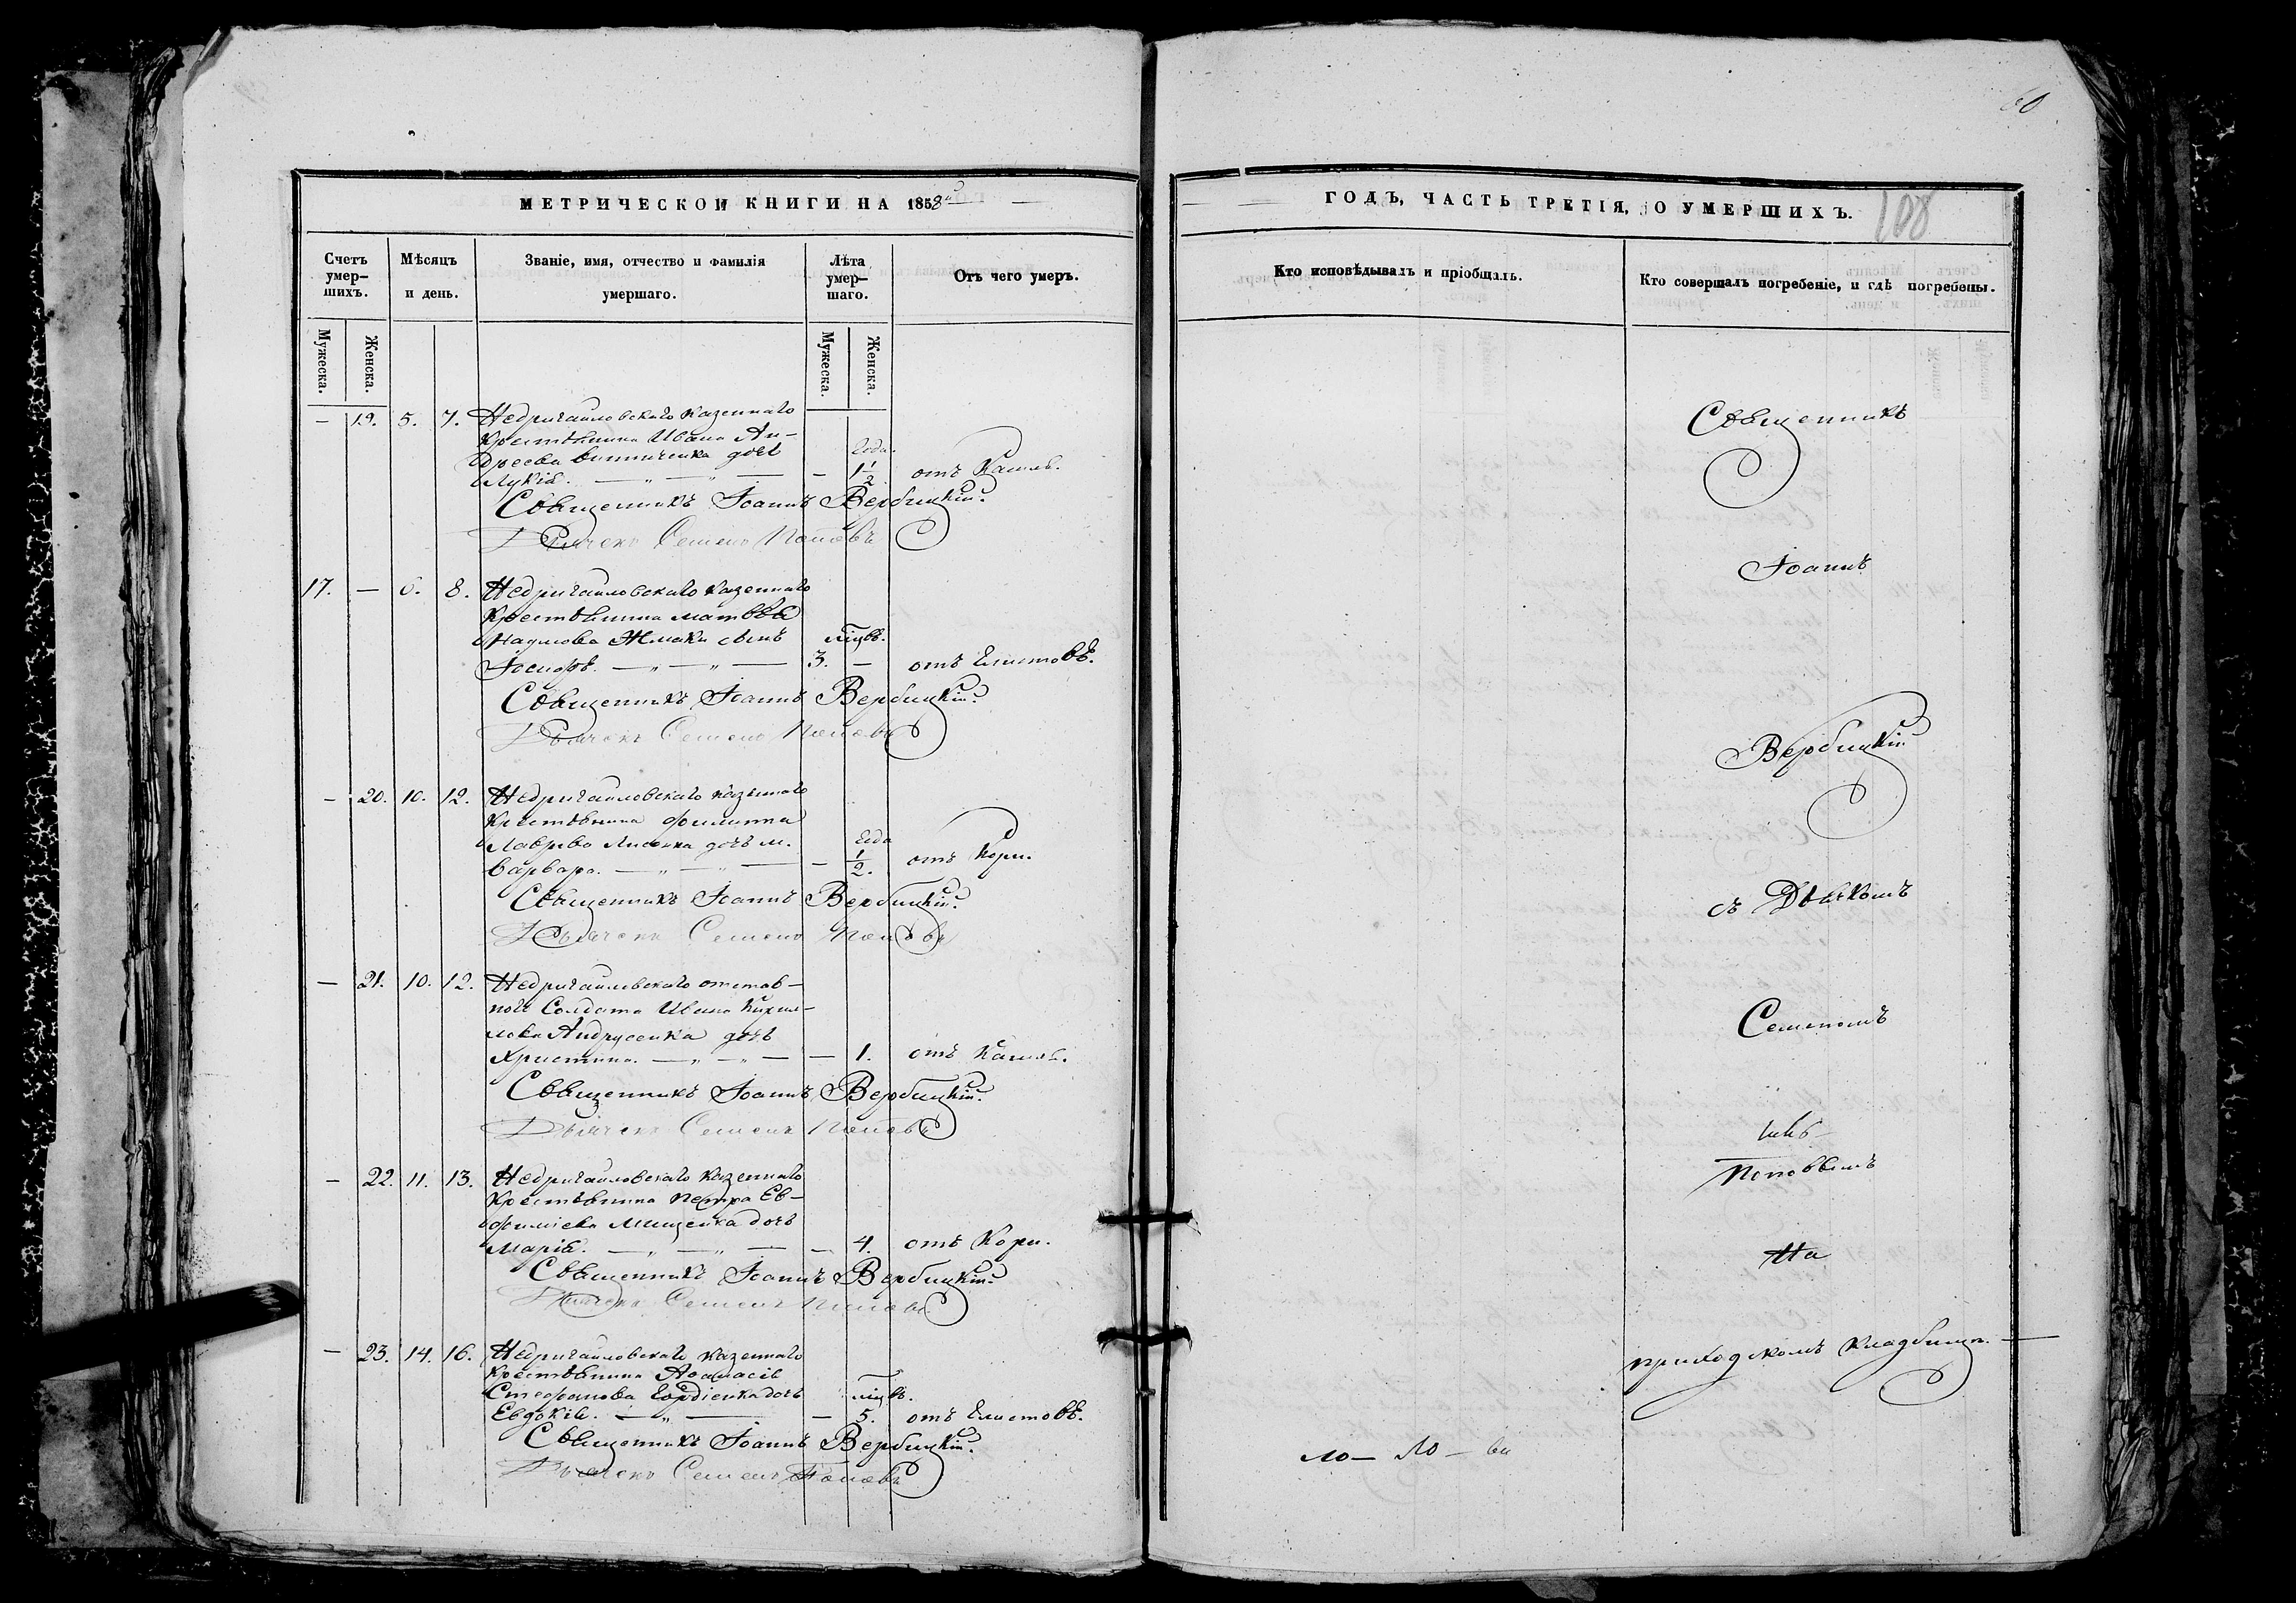 МЕТРИЧЕСКОЙ КНИГИ НА 1858й
Счетъ умер-
шихъ.
Мѣсяцъ
и день.
Званіе, имя, отчество и фамилія
умершаго.
Лѣта
умер-
шаго.
Отъ чего умеръ.
Мужеска.
Женска.
Мужеска.
Женска.
— 19. 5. 7. Недригайловскаго казеннаго
крестьянина Ивана Ан-
дреева Винниченка дочь Года.
Лукія. — 1 1/2 отъ Кашля.
Священникъ Іоаннъ Вербицкій.
Дьячекъ Семенъ Поповъ
17. — 6. 8. Недригайловскаго казеннаго
крестьянина Матвѣя
Наумова Жмаки сынъ мцвъ.
Іосифъ. — 3. — отъ Глистовъ.
Священникъ Іоаннъ Вербицкій.
Дьячекъ Семенъ Поповъ
— 20. 10. 12. Недригайловскаго казеннаго
крестьянина Филиппа
Лаврова Лисенка дочь м. Года
Варвара. — 1/2. отъ Кори.
Священникъ Іоаннъ Вербицкій.
Дьячекъ Семенъ Поповъ
— 21. 10. 12. Недригайловскаго отстав-
ного Солдата Ивана Кирил-
лова Андрусенка дочь
Христина. — — 1. отъ Кашля.
Священникъ Іоаннъ Вербицкій.
Дьячекъ Семенъ Поповъ
— 22. 11. 13. Недригайловскаго казеннаго
крестьянина Петра Ев-
фиміева Мищенка дочь
Марія. — — 4. отъ Кори.
Священникъ Іоаннъ Вербицкій.
Дьячекъ Семенъ Поповъ
— 23. 14. 16. Недригайловскаго казеннаго
крестьянина Аѳанасія
Стефанова Гордіенка дочь мцвъ.
Евдокія. — — 5. отъ Глистовъ.
Священникъ Іоаннъ Вербицкій.
Дьячекъ Семенъ Поповъ
60
ГОДЪ, ЧАСТЬ ТРЕТІЯ, О УМЕРШИХЪ.
108
Кто исповѣдывалъ и пріобщалъ.
Кто совершалъ погребеніе, и гдѣ погребены.
Священникъ
Іоаннъ
Вербицкій
съ Дьячкомъ
Семеномъ
Поповымъ
На
приходскомъ Кладбищѣ.